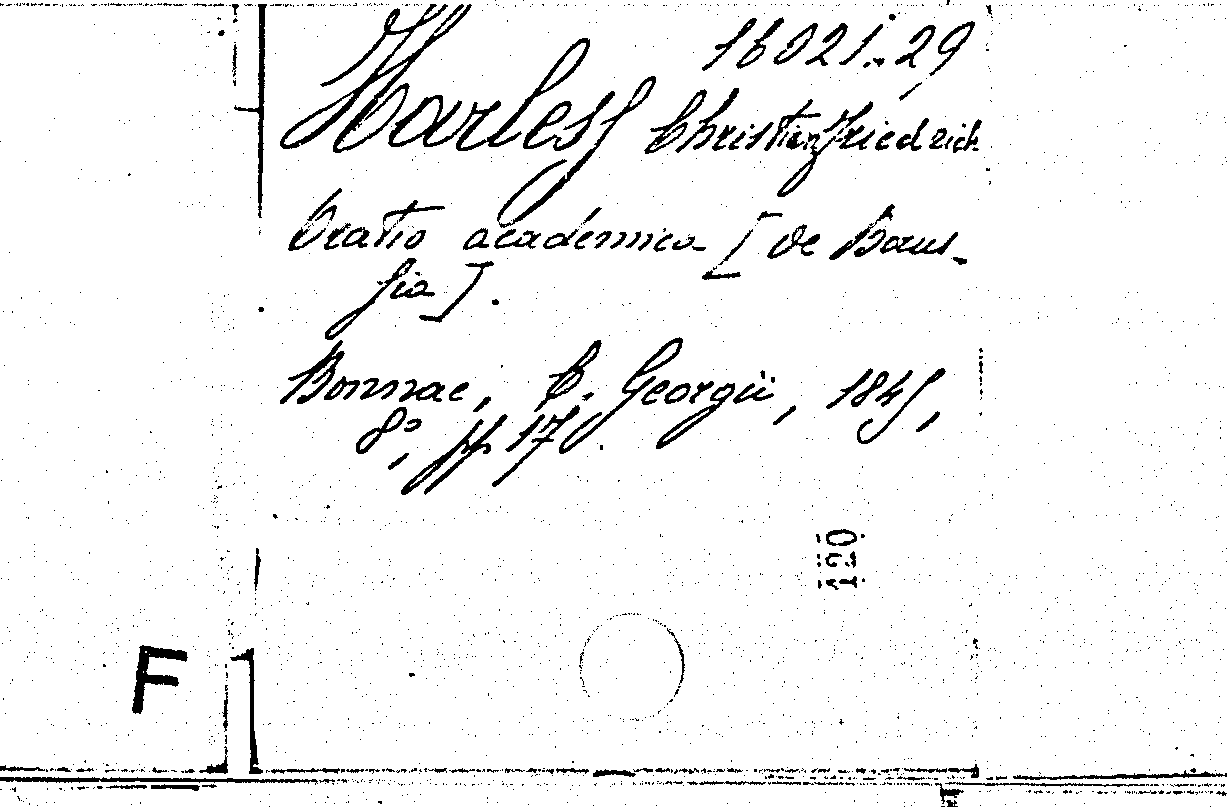 16021.-29
Harless Christian Friedrich
Oratio academica [de
]
Bonnae, C. Georgii, 1845,
8°, pp 17.
120
F